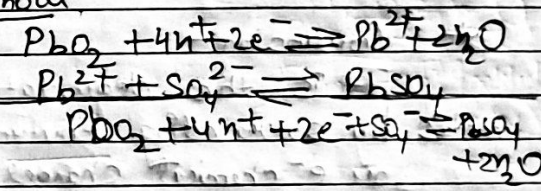 PbO₂ + 4H⁺ + 2e⁻ ⇌ Pb²⁺ + 2H₂O
Pb²⁺ + SO₄²⁻ ⇌ PbSO₄
PbO₂ + 4H⁺ + 2e⁻ + SO₄⁻ ⇌ PbSO₄
+ 2H₂O